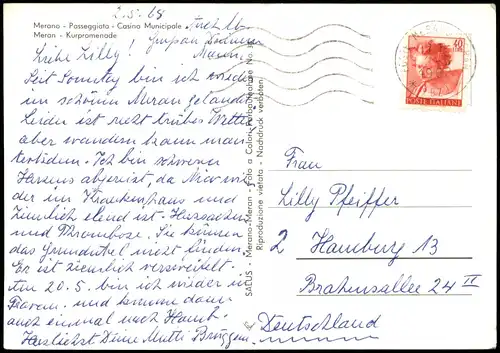 Merano - Passeggiata - Casino Municipale
Meran - Kurpromenade
2.5.68
Meran
Liebe Lilly!
Seit Sonntag bin ich wieder
im schönen Meran gelandet
Leider ist recht trübes Wetter
aber wandern kann man
trotzdem. Ich bin schweren
Herzens abgereist, da wie
der im Krankenhaus und
ziemlich elend ist Herzsachen
und Thrombose. Sie können
das Grundübel nicht finden.
Er ist ziemlich verzweifelt.
Am 20.5. bin ich wieder in
und komme dann
auch einmal nach Hamb.
Herzlichst Deine Mutti Brüggem.
SALUS - Merano-Meran - Foto a Colori-Farbaufnahme No
Riproduzione vietata - Nachdruck verboten
40
POSTE ITALIANE
Frau
Lilly Pfeiffer
2 Hamburg 13
Brahmsallee 24 II
Deutschland